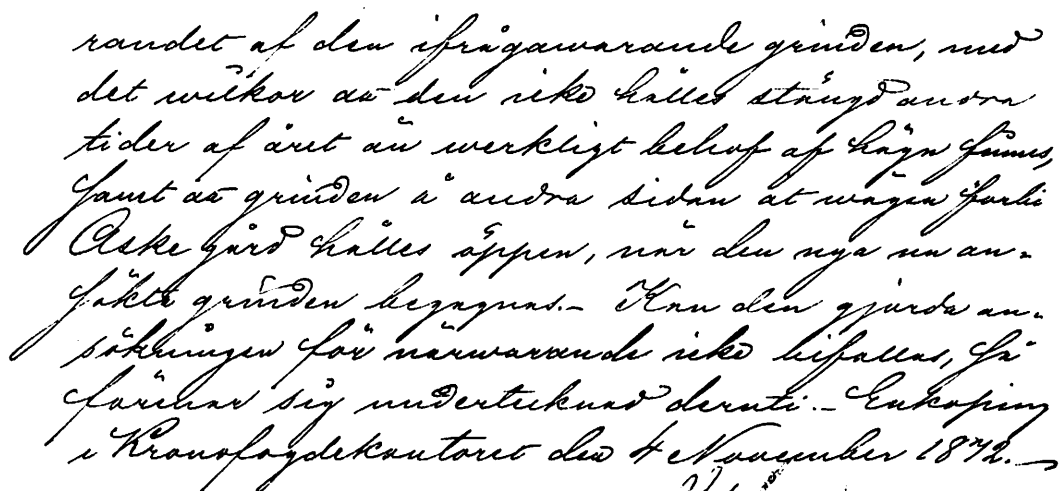 randet af den ifrågawarande grinden, med
det wilkor att den icke hålles stängd andra
tider af året än werkligt behof af hägn finnes,
samt att grinden å andra sidan at wägen förbi
Aske gård hålles öppen, när den nya nu an-
sökta grinden begagnas.- Kan den gjorda an-
sökningen för närwarande icke bifallas, så
förenar sig undertecknad deruti.- Enköping
i Kronofogdekontoret den 4 November 1872.